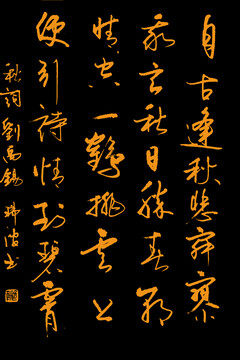 自古逢秋悲寂寥
我言秋日胜春朝
晴空一鹤排云上
便引诗情到碧霄
秋词 刘禹锡 瑞滢书